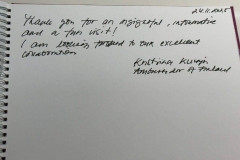 24.11.2025
Thank you for an insightful, informative
and a fun visit!
I am looking forward to our excellent
collaboration
Ambassador of Finland